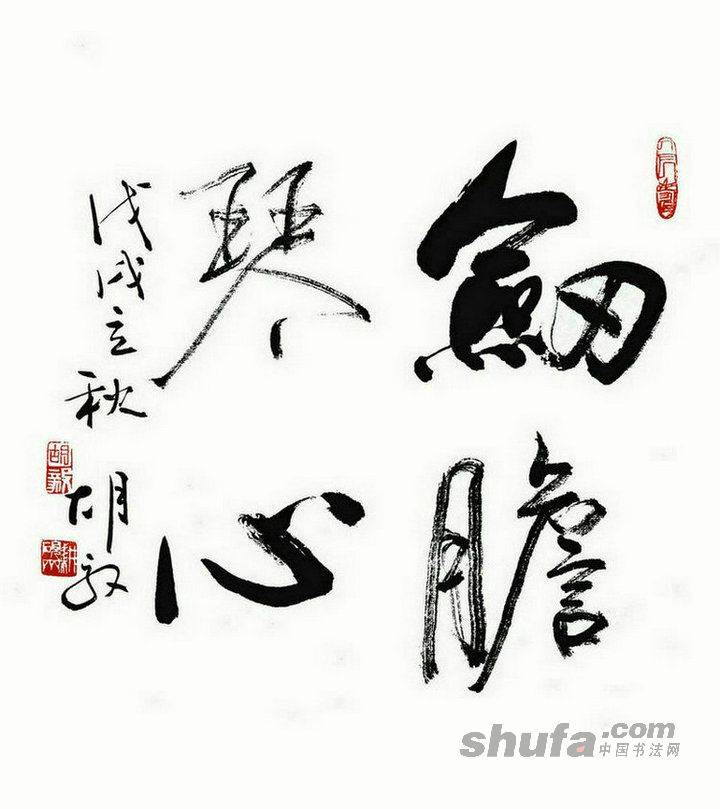 劔膽
琴心
戊戌立秋 胡
shufa.com
中国书法网